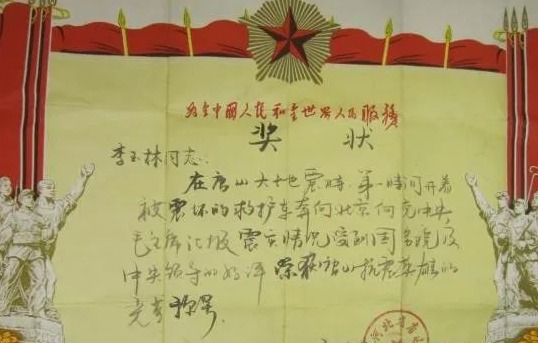 为全中國人民和全世界人民服務
奖状
李玉林同志:
在唐山大地震時第一時间开着
被震坏的救护车奔向北京向党中央
毛主席汇报震灾情况受到国务院及
中央领导的好评荣获唐山抗震英雄的
光荣称号
河北省